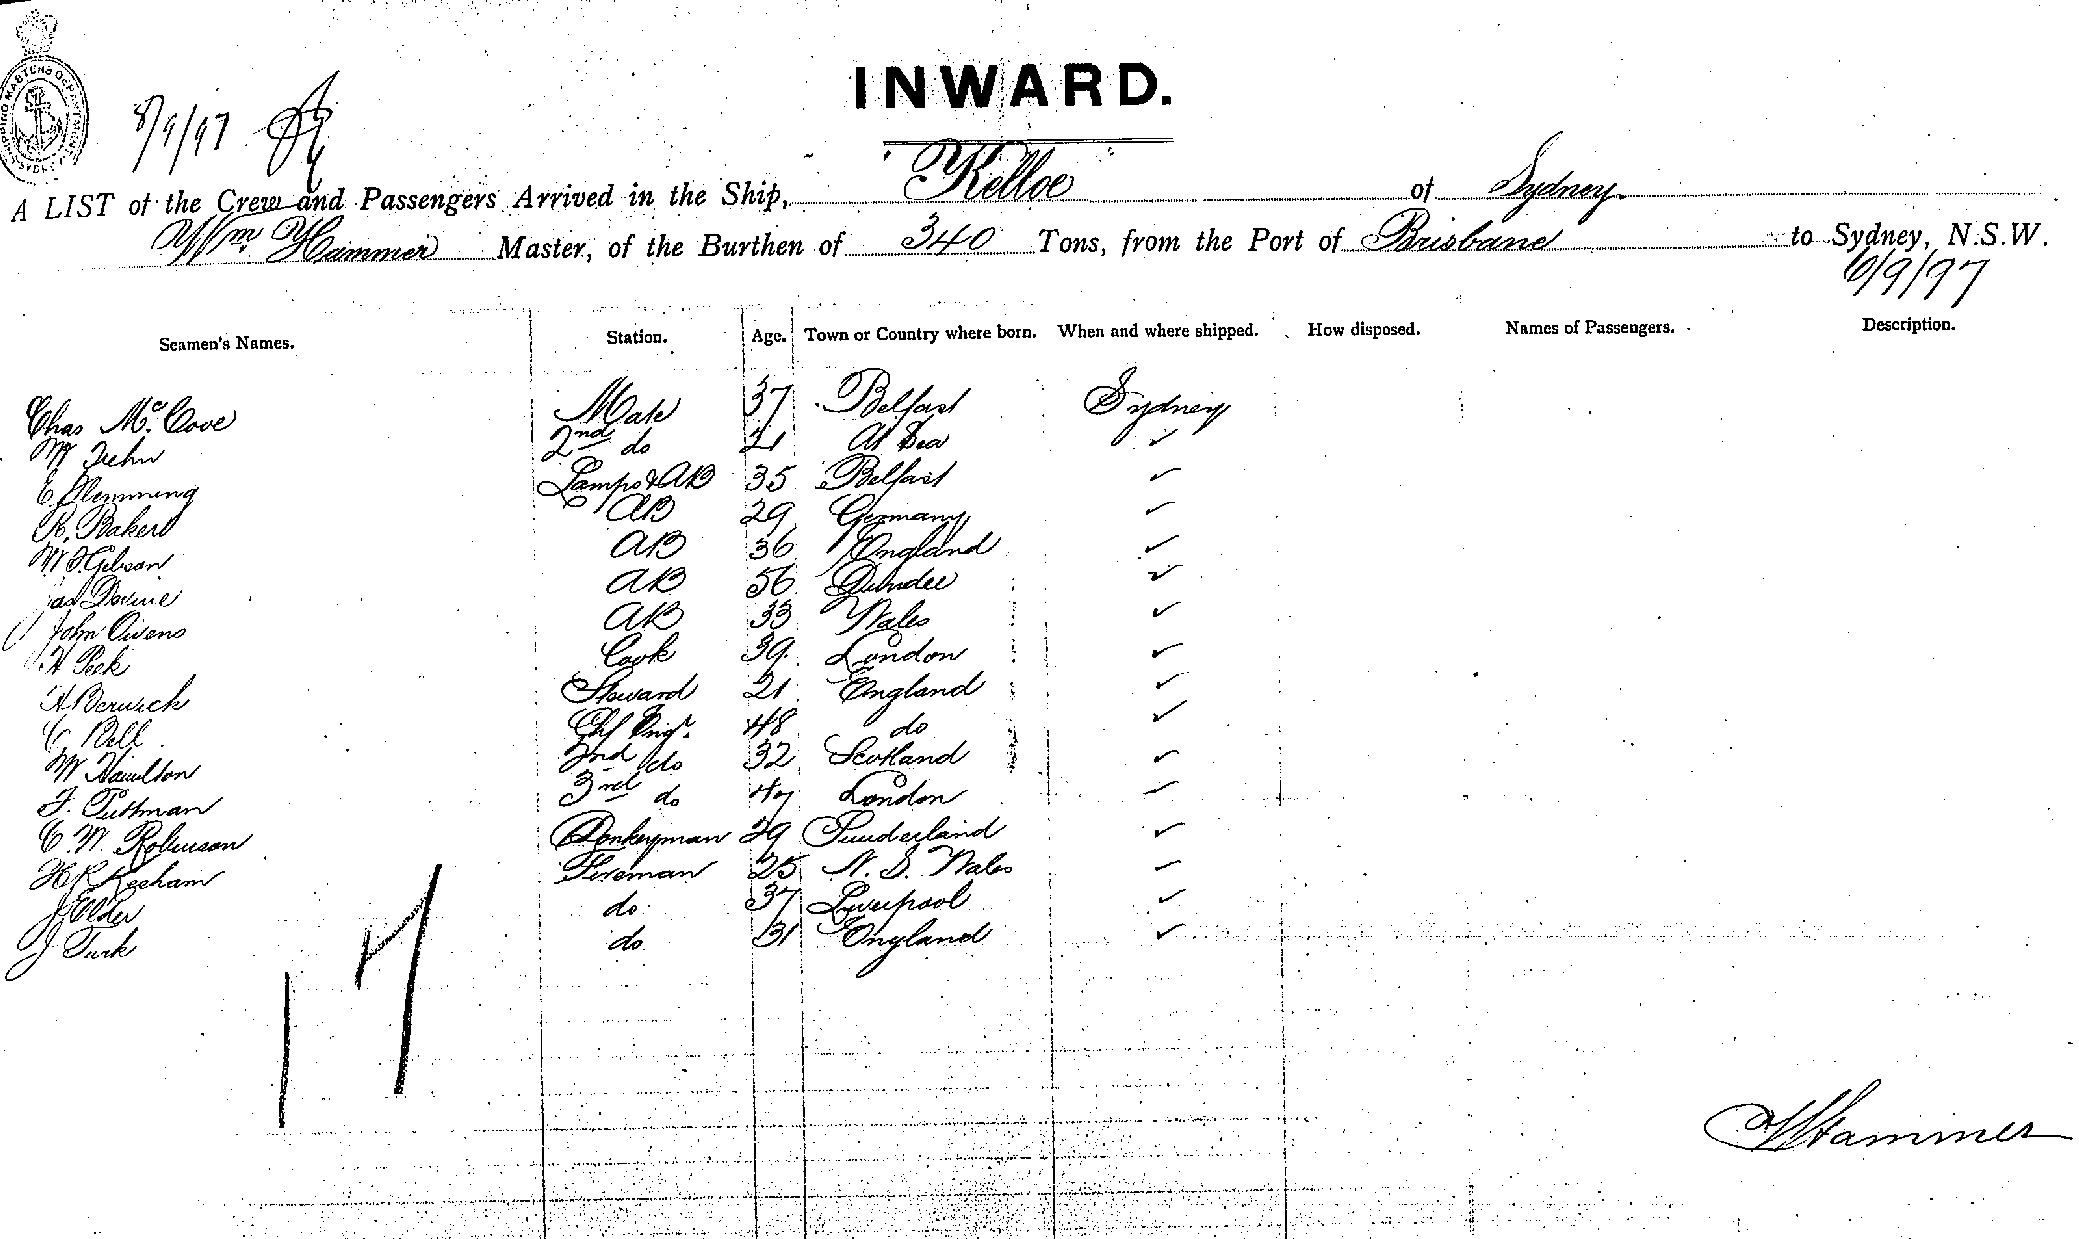 INWARD.
8/9/97
A LIST of the Crew and Passengers Arrived in the Ship, Kelloe of Sydney
Wm Hammer Master, of the Burthen of 340 Tons, from the Port of Brisbane to Sydney, N.S.W.
6/9/97
Seamen's Names. Station. Age. Town or Country where born. When and where shipped. How disposed. Names of Passengers. Description.
Chas Mc.Cove Mate 37 Belfast Sydney
W 2nd do 21 At Sea ✓
C Flemming Lamps & AB 35 Belfast ✓
R. Bakere AB 29 Germany ✓
W Gibson AB 36 England ✓
Jas Devine AB 56 Dundee ✓
John Owens AB 33 Wales ✓
H Peek Cook 39 London ✓
A Berwick Steward 21 England ✓
C Bell Chf Engr. 48 do ✓
W Hamilton 2nd do 32 Scotland ✓
F. Pittman 3rd do 47 London ✓
C. W. Robinson Donkeyman 29 Sunderland ✓
Keeham Fireman 25 N. S. Wales ✓
J Elder do 37 Liverpool ✓
J Turk do 31 England ✓
17
W Hammer